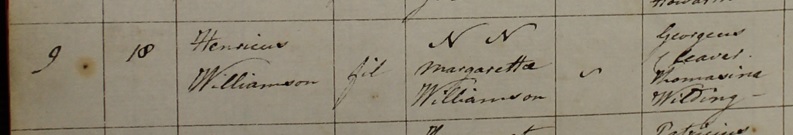 9 18 Henricus Williamson fil N N Margaretta Williamson Georgeus Cleaver. Thomasina Wilding